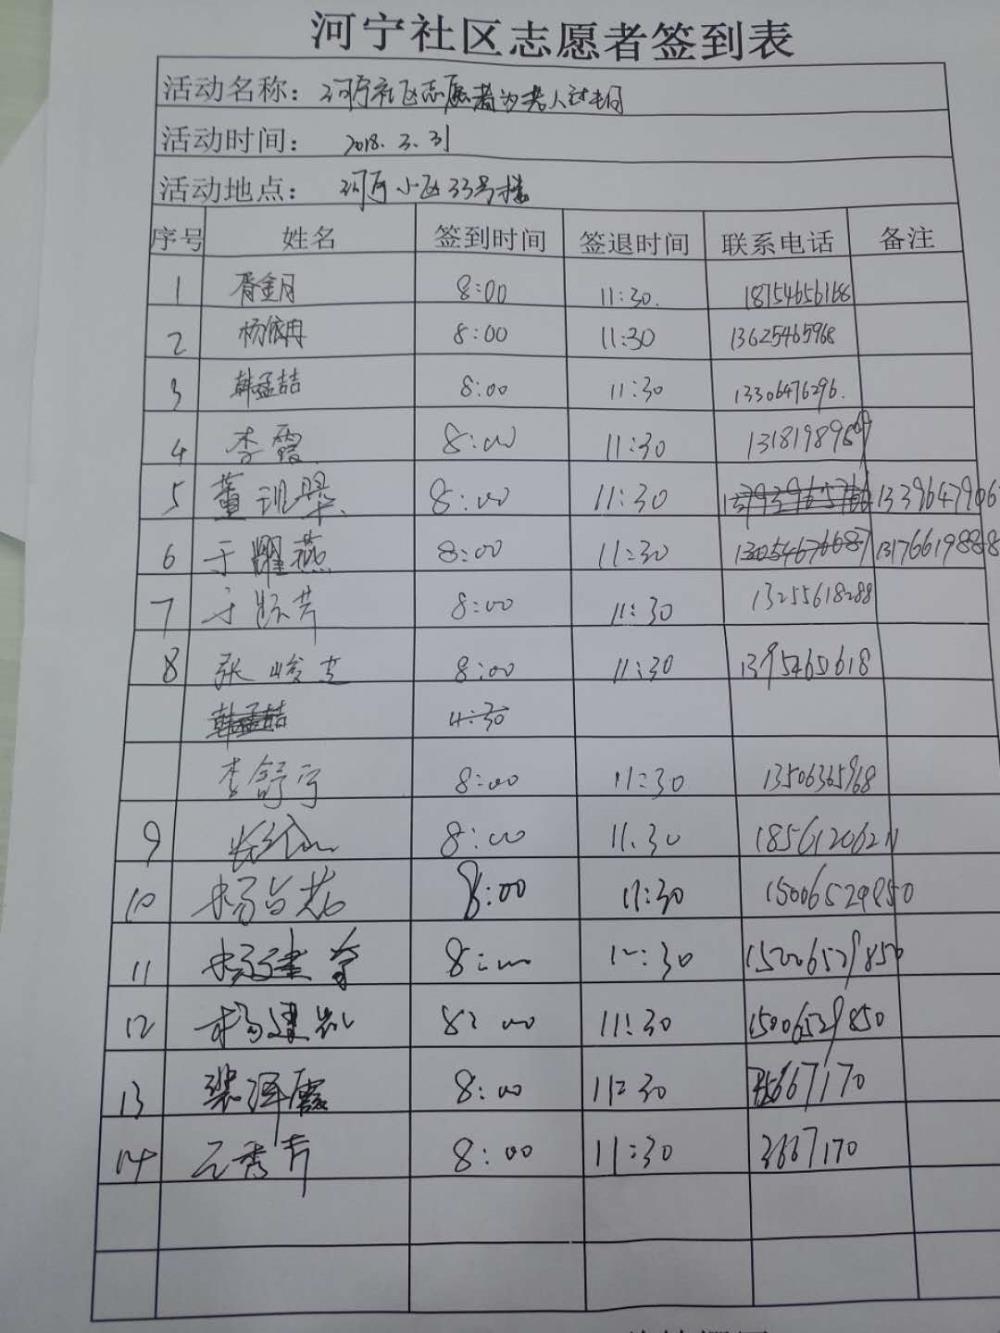 河宁社区志愿者签到表
活动名称：河宁社区志愿者为老人过生日
活动时间：2018.3.31
活动地点：河宁小区33号楼
序号 姓名 签到时间 签退时间 联系电话 备注
1 胥金月 8:00 11:30. 18754656168
2 杨依冉 8:00 11:30 13625465968
3 韩孟喆 8:00 11:30 13306476296.
4 李霞 8:00 11:30
5 董 8:00 11:30
6 于耀燕 8:00 11:30 13176619888
7 于 芳 8:00 11:30 13255618288
8 张峻 8:00 11:30 1395460618
韩孟喆 4:30
李舒宁 8:00 11:30 13506365968
9 8:00 11.30
10 杨 8:00 11:30 15006529850
11 杨建 8:00 11:30 15006529850
12 杨建 8:00 11:30 15006529850
13 8:00 11:30 3667170
14 秀芹 8:00 11:30 3667170